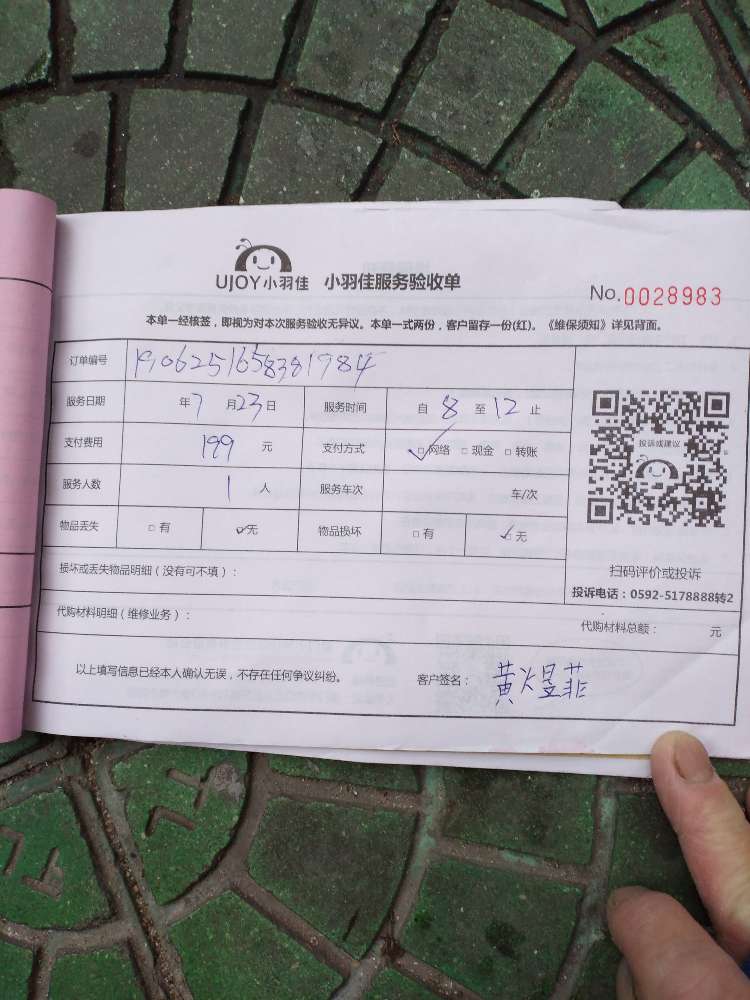 UJOY小羽佳 小羽佳服务验收单
No.0028983
本单一经核签，即视为对本次服务验收无异议。本单一式两份，客户留存一份(红)。《维保须知》详见背面。
订单编号 1906251658381984
服务日期 年7月23日 服务时间 自8至12止
投诉或建议
支付费用 199元 支付方式 ✓□网络 □现金 □转账
服务人数 1人 服务车次 车/次
物品丢失 □有 ✓无 物品损坏 □有 ✓□无
扫码评价或投诉
损坏或丢失物品明细（没有可不填）：
投诉电话：0592-5178888转2
代购材料明细（维修业务）： 代购材料总额： 元
以上填写信息已经本人确认无误，不存在任何争议纠纷。 客户签名： 黄煜菲